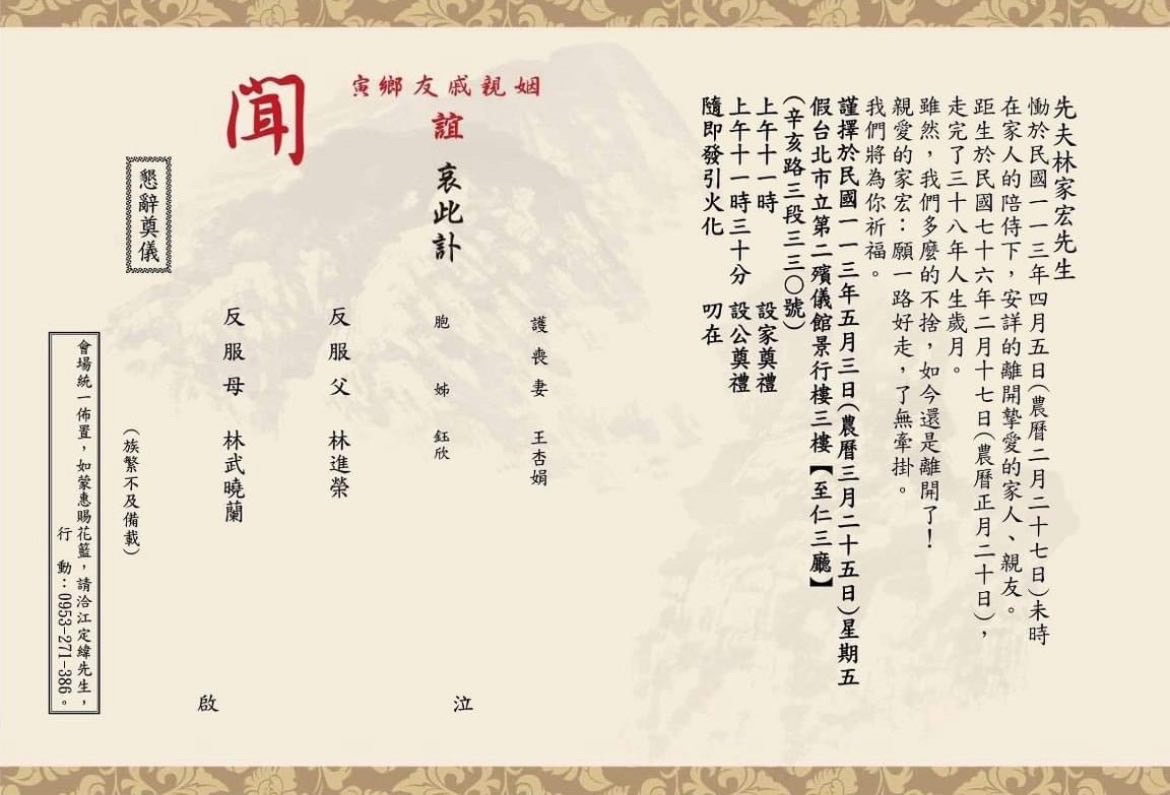 先夫林家宏先生
慟於民國一一三年四月五日(農曆二月二十七日)未時
在家人的陪侍下，安詳的離開摯愛的家人、親友。
距生於民國七十六年二月十七日(農曆正月二十日)，
走完了三十八年人生歲月。
雖然，我們多麼的不捨，如今還是離開了!
親愛的家宏：願一路好走，了無牽掛。
我們將為你祈福。
謹擇於民國一一三年五月三日(農曆三月二十五日)星期五
假台北市立第二殯儀館景行樓三樓【至仁三廳】
(辛亥路三段三三〇號)
上午十一時 設家奠禮
上午十一時三十分 設公奠禮
隨即發引火化 叨在
姻親戚友鄉寅
誼
哀此訃
聞
護喪妻 王杏娟
胞姊 鈺欣
反服父 林進榮
反服母 林武曉蘭
泣
啟
(族繁不及備載)
懇辭奠儀
會場統一佈置，如蒙惠賜花籃，請洽江定緯先生，
行動：0953-271-386。